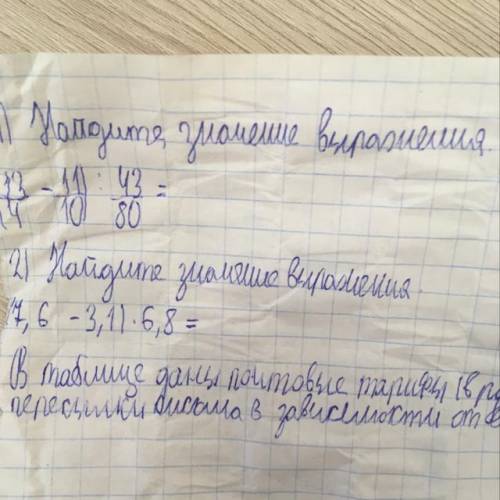 1) Найдите значение выражения.
(13/4 - 11/10) : 43/80 =
2) Найдите значение выражения.
(7,6 - 3,1) · 6,8 =
В таблице даны почтовые тарифы (в
пересылки письма в зависимости от